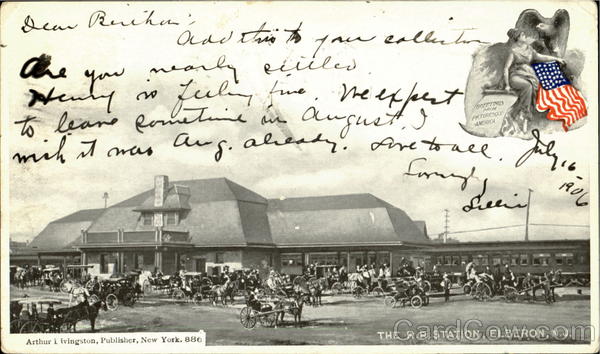 Dear Bertha:
Add this to your collection
Are you nearly settled.
Henry is feeling fine. We expect
to leave sometime in August. I
wish it was Aug. already. Love to all.
July 16
1906
Lovingly
Lillie
GREETINGS
FROM
PICTURESQUE
AMERICA
Arthur Livingston, Publisher, New York. 886
THE R.R. STATION, ELBERON, N.J.
CardCow.com